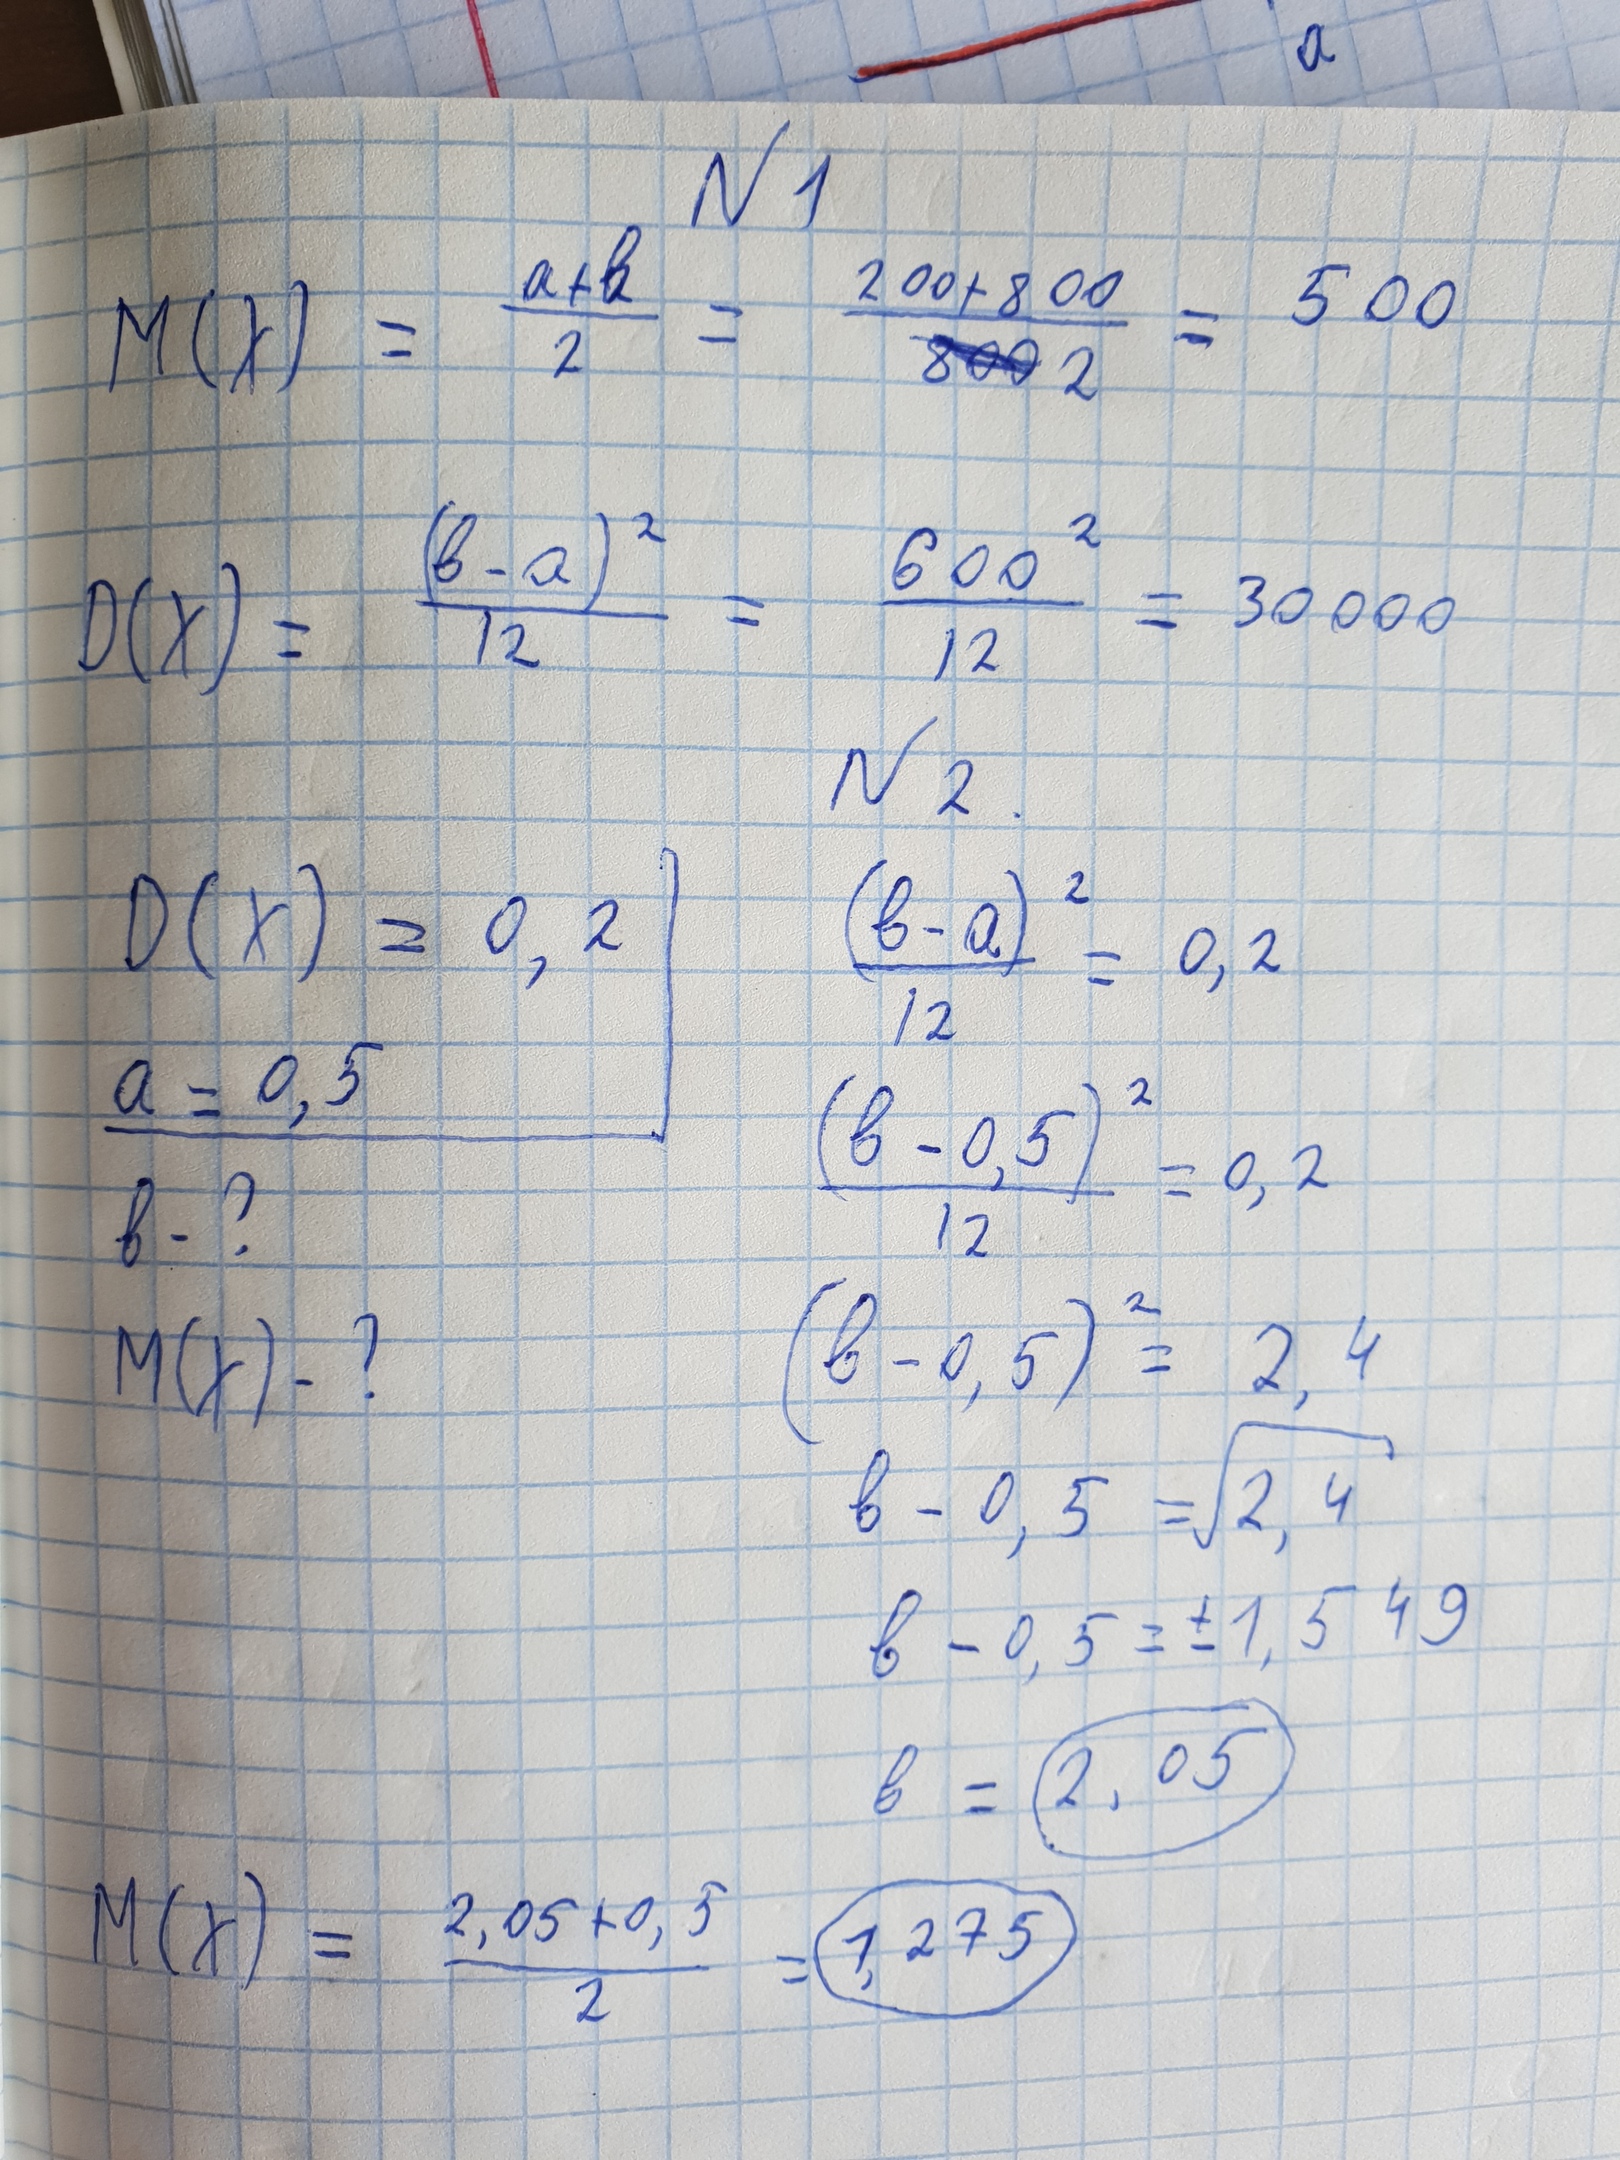 a
N 1
M(X) = (a+b)/2 = (200+800)/2 = 500
D(X) = (в-a)²/12 = 600²/12 = 30000
N 2.
D(X) = 0,2
a = 0,5
в - ?
M(X) - ?
(в-a)²/12 = 0,2
(в - 0,5)²/12 = 0,2
(в - 0,5)² = 2,4
в - 0,5 = √2,4
в - 0,5 = ±1,549
в = 2,05
M(X) = (2,05+0,5)/2 = 1,275